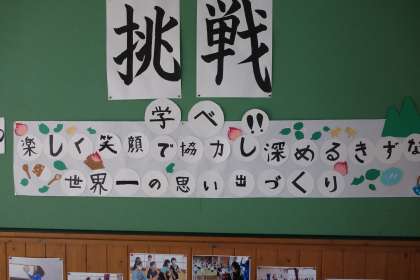 挑戦
学べ!!
楽しく笑顔で協力し深めるきずな
世界一の思い出づくり